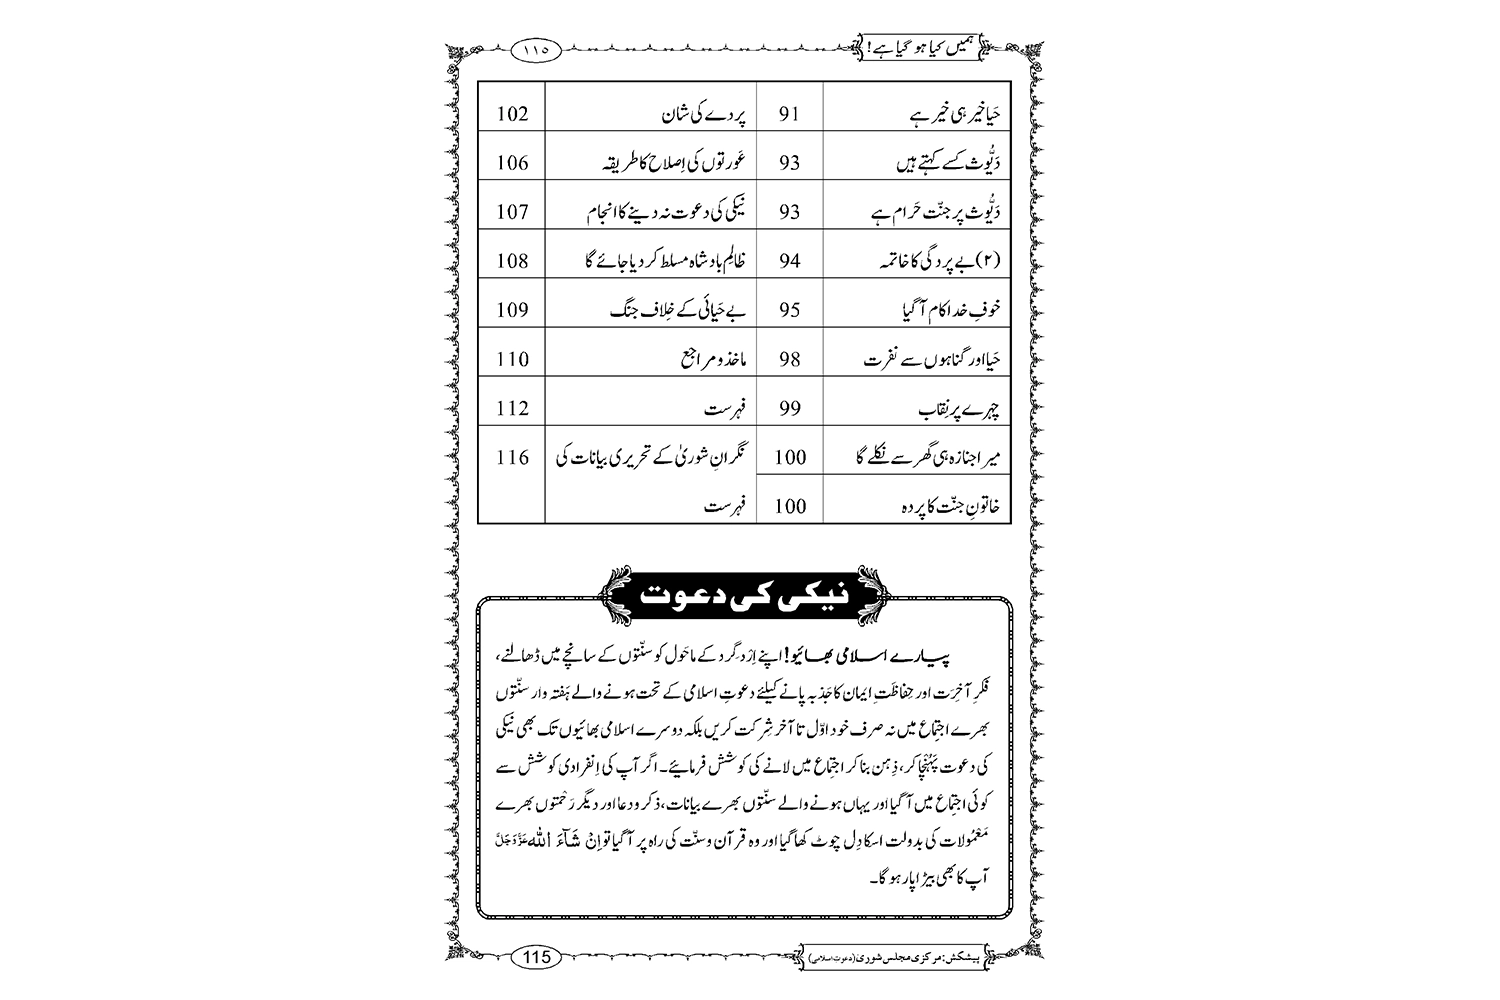 ہمیں کیا ہو گیا ہے!
١١٥
حَیا خیر ہی خیر ہے 91 پردے کی شان 102
دَیُّوث کسے کہتے ہیں 93 عَورتوں کی اِصلاح کا طریقہ 106
دَیُّوث پر جنّت حَرام ہے 93 نیکی کی دعوت نہ دینے کا انجام 107
(۲) بے پردگی کا خاتمہ 94 ظالِم بادشاہ مسلط کر دیا جائے گا 108
خوفِ خدا کام آ گیا 95 بے حَیائی کے خِلاف جنگ 109
حَیا اور گناہوں سے نفرت 98 ماخذ و مراجع 110
چہرے پر نِقاب 99 فہرست 112
میرا جنازہ ہی گھر سے نکلے گا 100 نگرانِ شوریٰ کے تحریری بیانات کی 116
خاتونِ جنّت کا پردہ 100 فہرست
نیکی کی دعوت
پیارے اسلامی بھائیو! اپنے اِرْد گِرد کے ماحَول کو سنّتوں کے سانچے میں ڈھالنے،
فَکرِ آخِرَت اور حِفاظَتِ ایمان کا جَذبہ پانے کیلئے دعوتِ اسلامی کے تحت ہونے والے ہَفتہ وار سنّتوں
بھرے اجتماع میں نہ صرف خود اوّل تا آخر شِرکت کریں بلکہ دوسرے اسلامی بھائیوں تک بھی نیکی
کی دعوت پَہُنْچا کر، ذِہن بنا کر اجتماع میں لانے کی کوشش فرمائیے۔ اگر آپ کی اِنفرادی کوشش سے
کوئی اجتماع میں آ گیا اور یہاں ہونے والے سنّتوں بھرے بیانات، ذکر و دعا اور دیگر رَحْمتوں بھرے
مَعمُولات کی بدولت اسکا دِل چوٹ کھا گیا اور وہ قرآن و سنّت کی راہ پر آ گیا تو اِنْ شَآءَ اللہ عَزَّوَجَلَّ
آپ کا بھی بیڑا پار ہو گا۔
پیشکش: مرکزی مجلس شوریٰ (دعوتِ اسلامی)
115